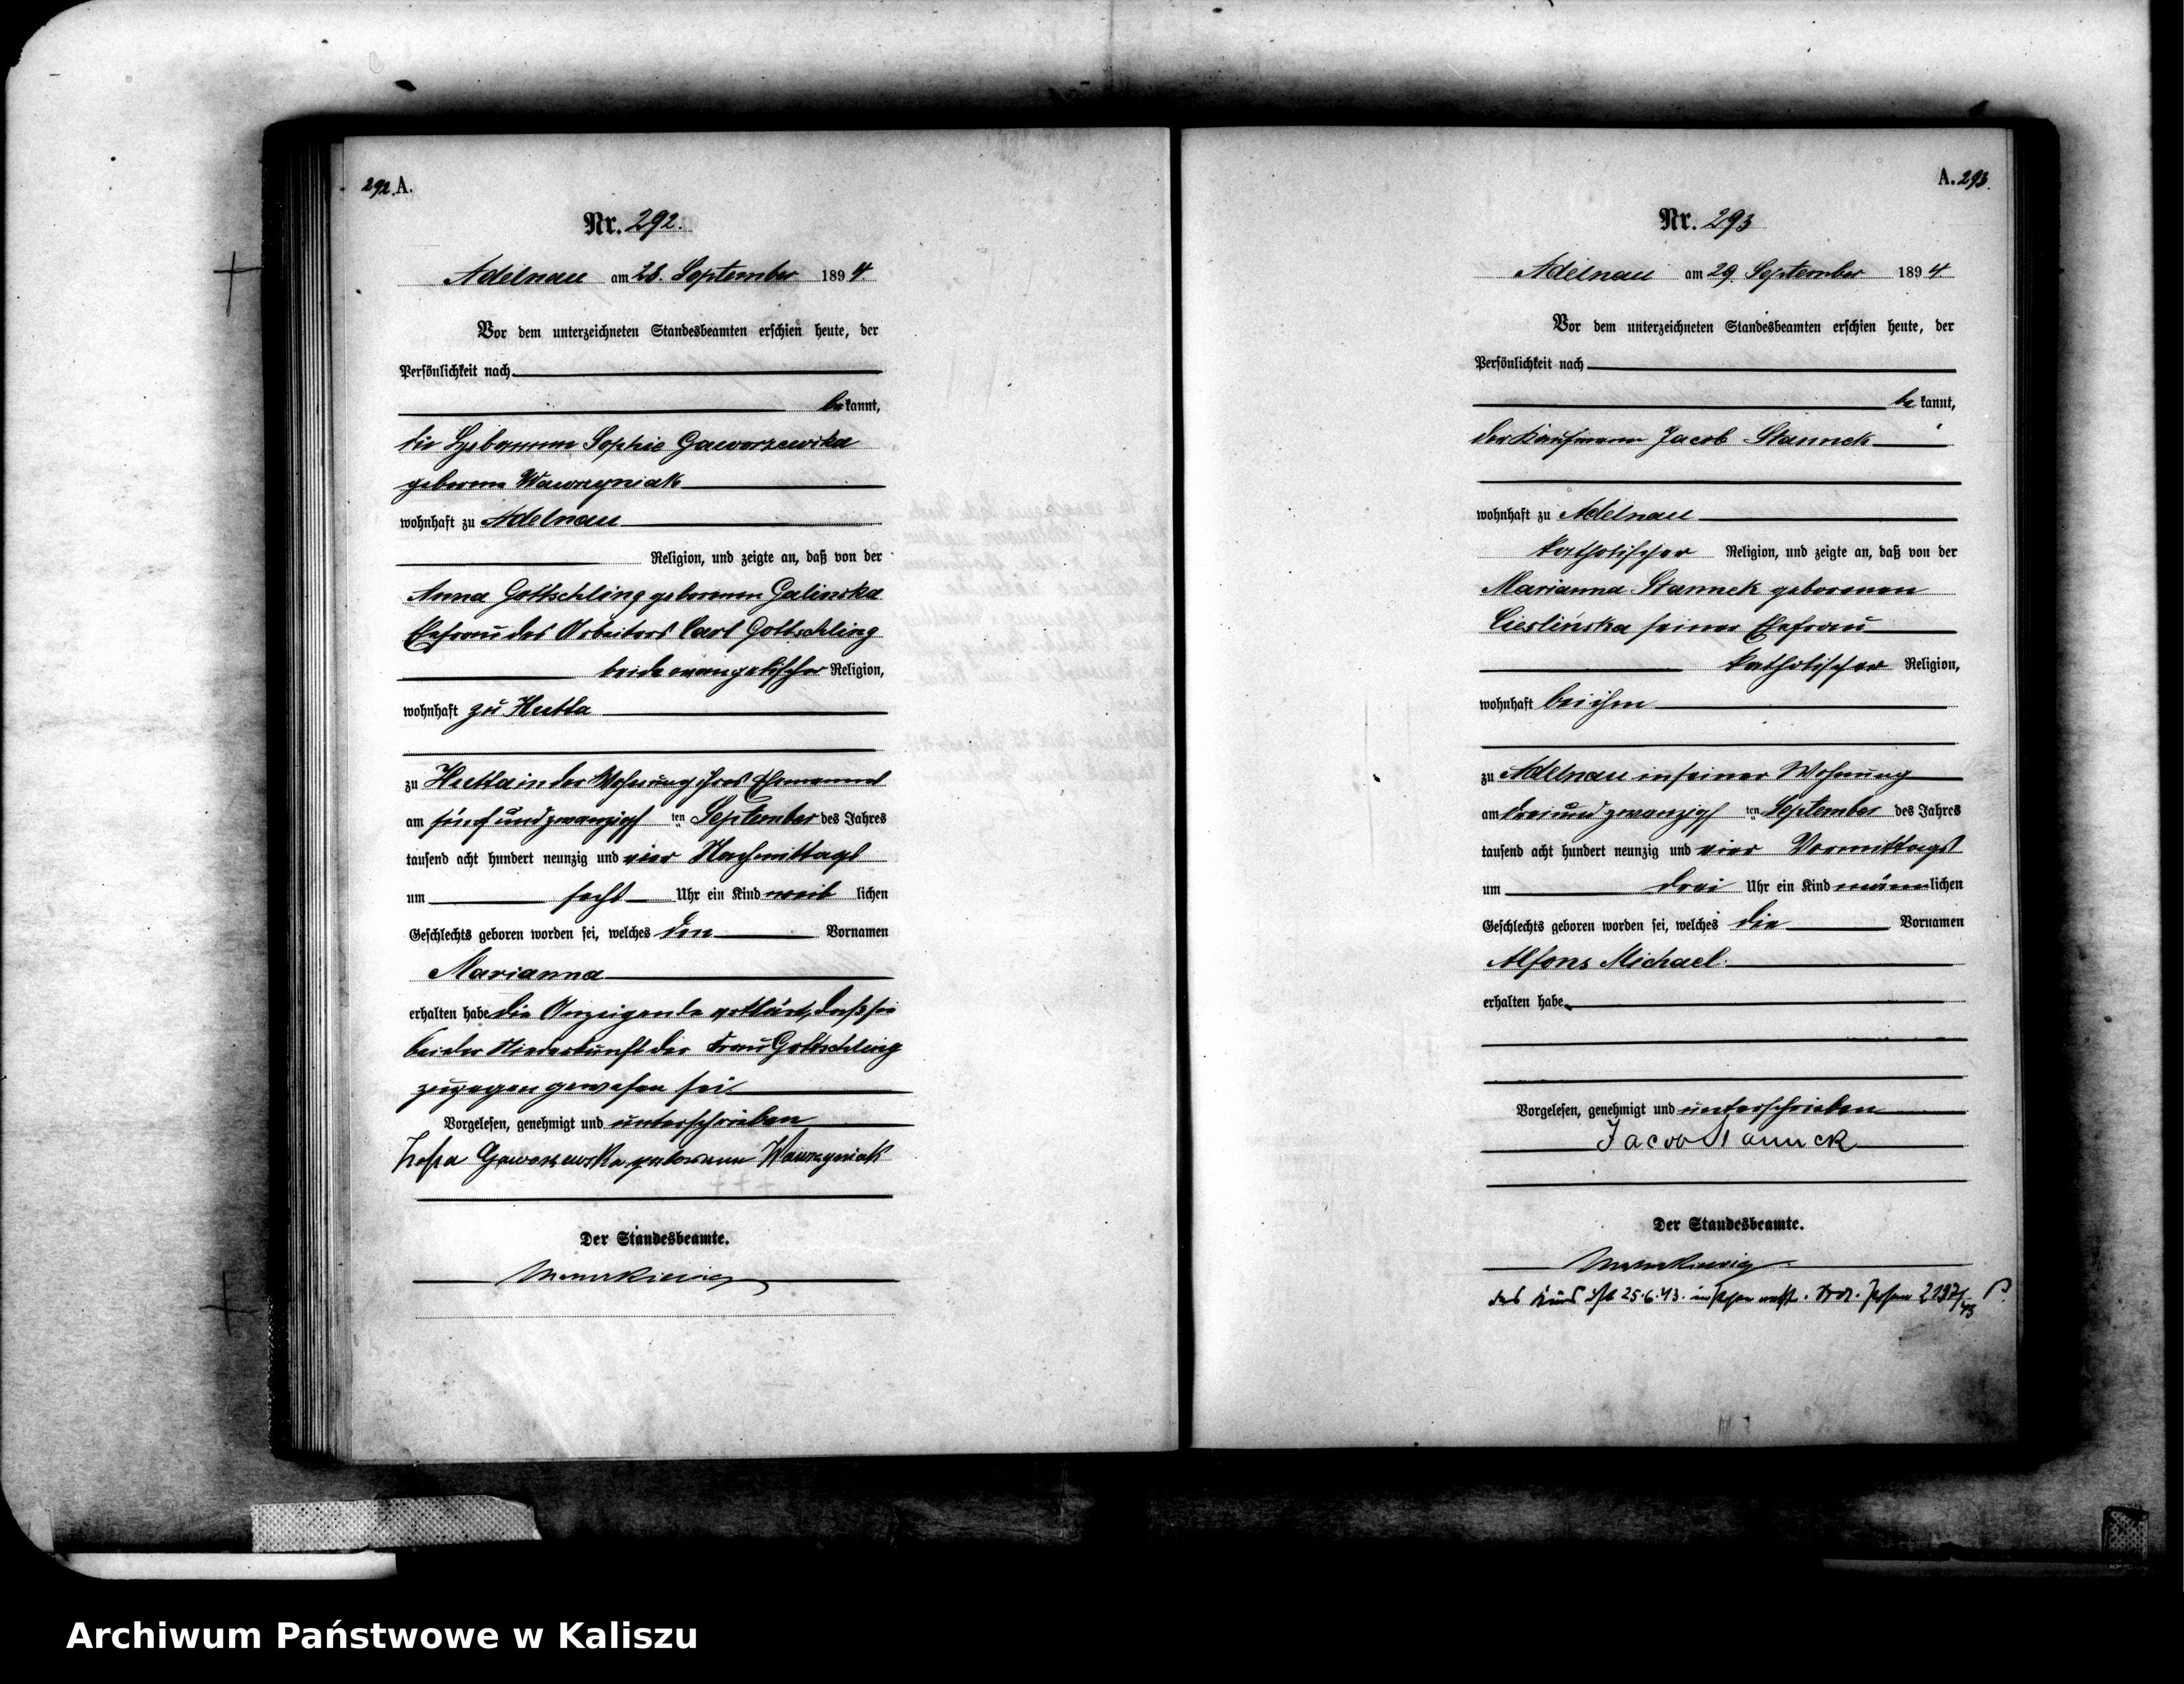 292. A.
Nr. 292.
Adelnau am 28. September 1894.
Vor dem unterzeichneten Standesbeamten erschien heute, der
Persönlichkeit nach
bekannt,
die Hebamme Sophie Gaworzewska
geborene Wawrzyniak
wohnhaft zu Adelnau
Religion, und zeigte an, daß von der
Anna Gottschling geborenen Galinska
Ehefrau des Arbeiters Carl Gottschling
beide evangelischer Religion,
wohnhaft zu Hutta
zu Hutta in der Wohnung ihres Ehemannes
am fünf und zwanzigsten September des Jahres
tausend acht hundert neunzig und vier Nachmittags
um sechs Uhr ein Kind weiblichen
Geschlechts geboren worden sei, welches den Vornamen
Marianna
erhalten habe die Anzeigende erklärt, daß sie
bei der Niederkunft der Frau Gottschling
zugegen gewesen sei
Vorgelesen, genehmigt und unterschrieben
Zofia Gaworzewska geborene Wawrzyniak
Der Standesbeamte.
A. 293.
Nr. 293
Adelnau am 29. September 1894
Vor dem unterzeichneten Standesbeamten erschien heute, der
Persönlichkeit nach
bekannt,
der Kaufmann Jacob Stannek
wohnhaft zu Adelnau
katholischer Religion, und zeigte an, daß von der
Marianna Stannek geborenen
Cieslińska seiner Ehefrau
katholischer Religion,
wohnhaft bei ihm
zu Adelnau in seiner Wohnung
am drei und zwanzigsten September des Jahres
tausend acht hundert neunzig und vier Vormittags
um drei Uhr ein Kind männlichen
Geschlechts geboren worden sei, welches die Vornamen
Alfons Michael
erhalten habe
Vorgelesen, genehmigt und unterschrieben
Jacob Stannek
Der Standesbeamte.
das Kind ist 25.6.43. in
Archiwum Państwowe w Kaliszu